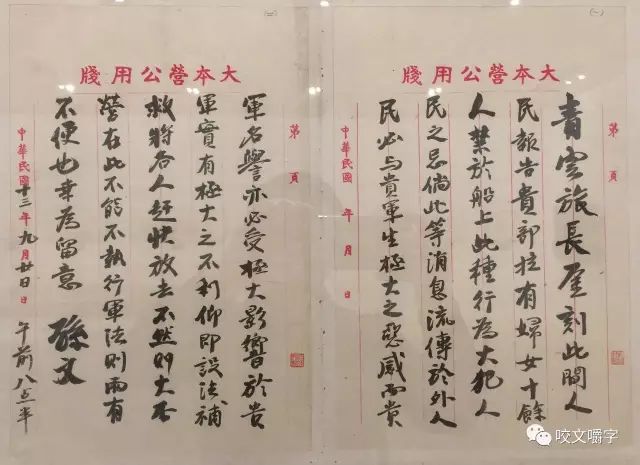 (一)
大本營公用牋
第 頁
青雲旅長刻此間人
民報告貴部拉有婦女十餘
人禁於船上此種行為大犯人
民之忌倘此等消息流傳於外人
民必与貴軍生極大之惡感而貴
中華民國 年 月 日
(二)
大本營公用牋
第 頁
軍名譽亦必受極大影響於貴
軍實有極大之不利仰即設法補
救將各人赶快放去不然則大本
營在此不能不執行軍法則兩有
不便也幸為留意 孫文
中華民國十三年九月廿日 午前八点半
咬文嚼字